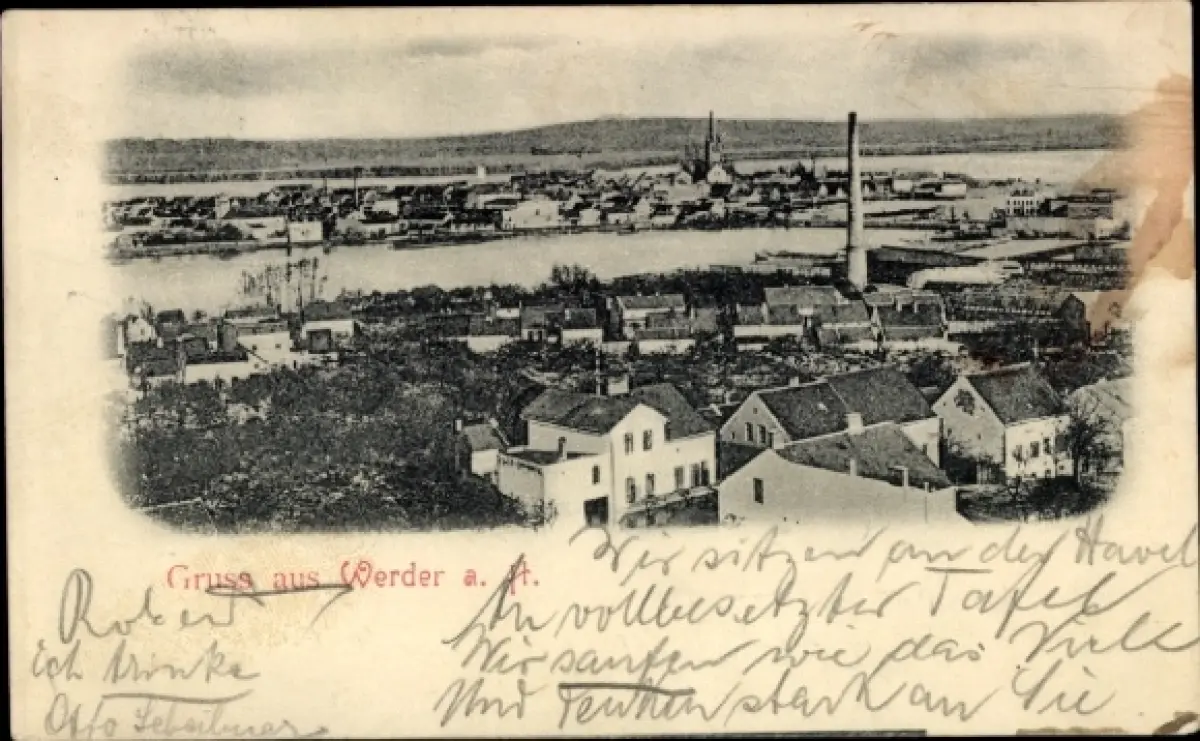 Gruss aus Werder a. H.
Wir sitzen an der Havel
An vollbesetzter Tafel
Wir saufen wie das Vieh
Und denken stark an Sie
Robert
ich trinke
Otto